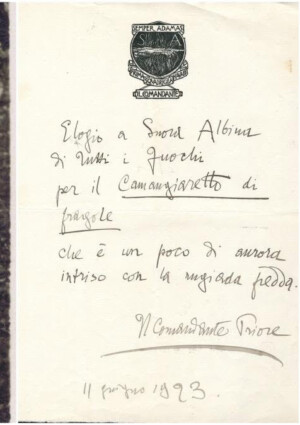 SEMPER ADAMAS
IL COMANDANTE
Elogio a Suora Albina
di tutti i Fuochi
per il Camangiaretto di
fragole
che è un poco di aurora
intriso con la rugiada fredda.
Il Comandante Priore
11 giugno 1923.